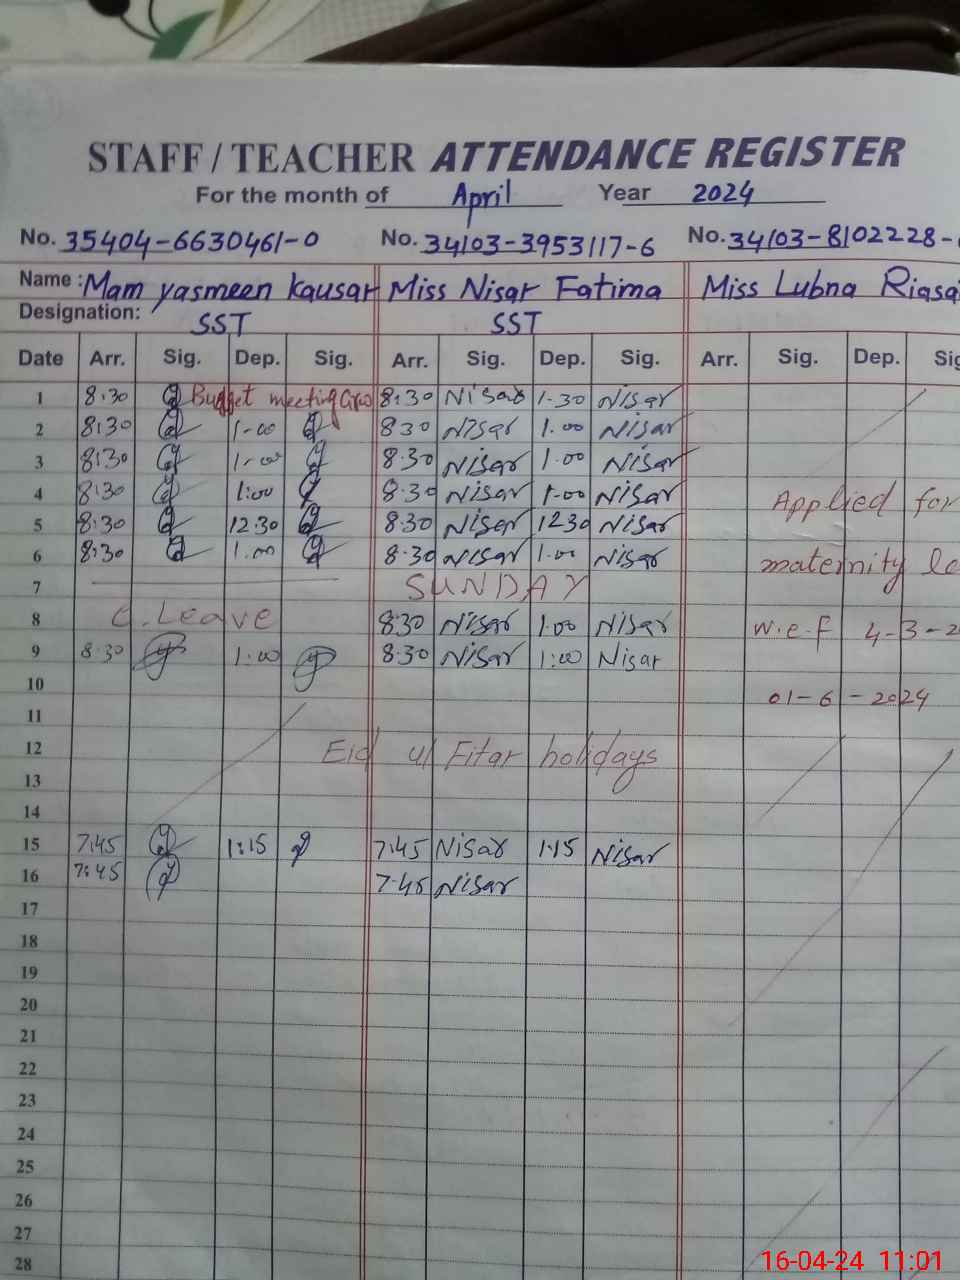 STAFF / TEACHER ATTENDANCE REGISTER
For the month of April Year 2024
No. 35404-6630461-0 No. 34103-3953117-6 No. 34103-8102228-
Name : Mam yasmeen Kausar Miss Nisar Fatima Miss Lubna Riasa
Designation: SST SST
Date Arr. Sig. Dep. Sig. Arr. Sig. Dep. Sig. Arr. Sig. Dep. Sig
1 8:30 Budget meeting 8:30 Nisar 1-30 Nisar
2 8:30 1-00 830 Nisar 1.00 Nisar
3 8:30 1-00 8.30 Nisar 1.00 Nisar
4 8:30 1:00 8.30 Nisar 1-00 Nisar Applied for
5 8:30 12.30 8.30 Nisar 1230 Nisar
6 8:30 1.00 8.30 Nisar 1.00 Nisar maternity le
7 SUNDAY
8 C.Leave 830 Nisar 1.00 Nisar w.e.f 4-3-2
9 8.30 1:00 8.30 Nisar 1:00 Nisar
10 01-6-2024
11
12 Eid ul Fitar holidays
13
14
15 7:45 1:15 7:45 Nisar 1:15 Nisar
16 7:45 7.45 Nisar
17
18
19
20
21
22
23
24
25
26
27
28
16-04-24 11:01